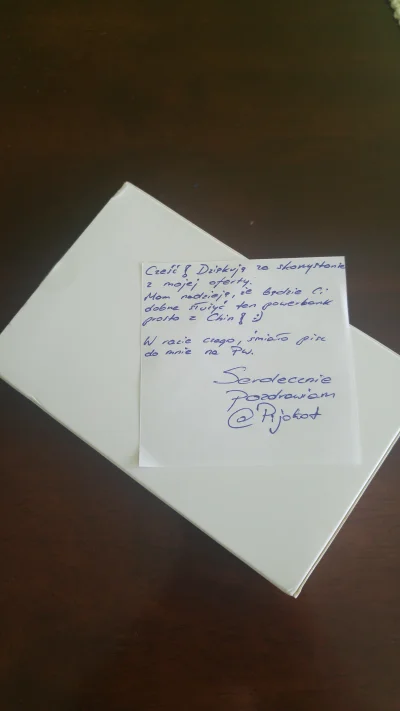 Cześć! Dziękuję za skorzystanie
z mojej oferty.
Mam nadzieję, że będzie Ci
dobrze służyć ten powerbank
prosto z Chin! :)
W razie czego, śmiało pisz
do mnie na Pw.
Serdecznie
Pozdrawiam
@Rjokot